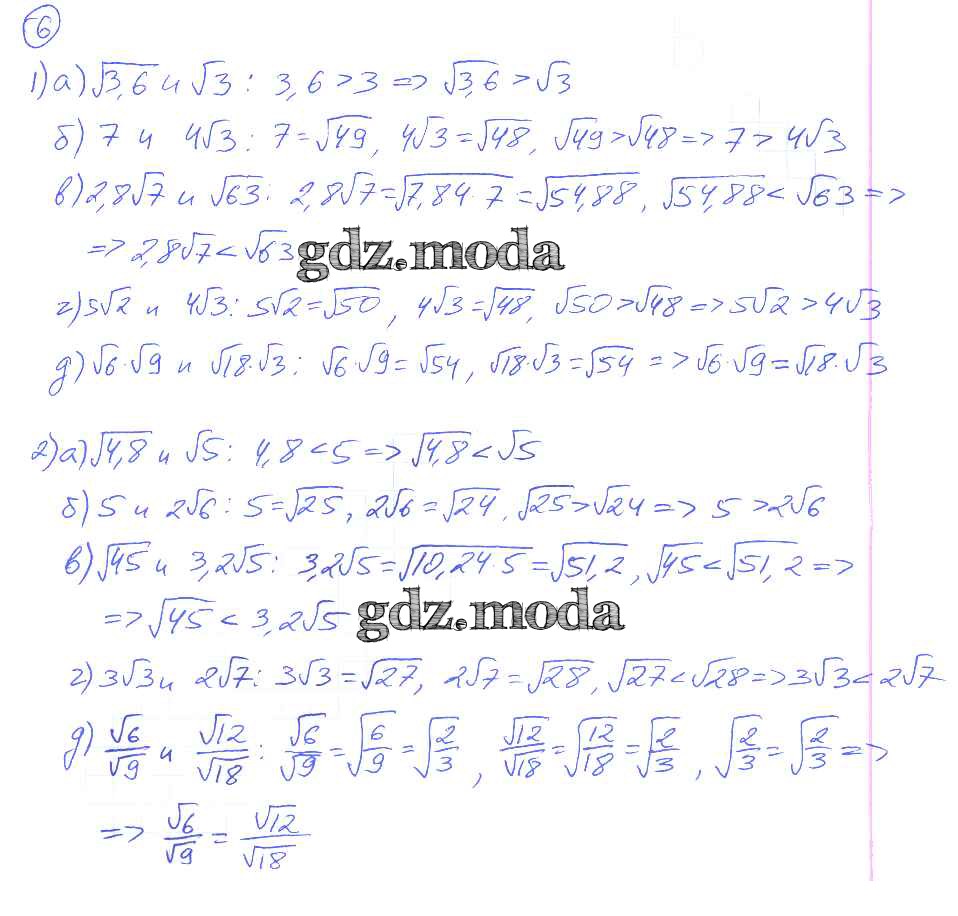 6
1) а) √3,6 и √3 : 3,6 > 3 => √3,6 > √3
б) 7 и 4√3 : 7 = √49, 4√3 = √48, √49 > √48 => 7 > 4√3
в) 2,8√7 и √63 : 2,8√7 = √7,84·7 = √54,88, √54,88 < √63 =>
=> 2,8√7 < √63
gdz.moda
г) 5√2 и 4√3 : 5√2 = √50, 4√3 = √48, √50 > √48 => 5√2 > 4√3
д) √6·√9 и √18·√3 : √6·√9 = √54, √18·√3 = √54 => √6·√9 = √18·√3
2) а) √4,8 и √5 : 4,8 < 5 => √4,8 < √5
б) 5 и 2√6 : 5 = √25, 2√6 = √24, √25 > √24 => 5 > 2√6
в) √45 и 3,2√5 : 3,2√5 = √10,24·5 = √51,2, √45 < √51,2 =>
=> √45 < 3,2√5
gdz.moda
г) 3√3 и 2√7 : 3√3 = √27, 2√7 = √28, √27 < √28 => 3√3 < 2√7
д) √6/√9 и √12/√18 : √6/√9 = √6/9 = √2/3, √12/√18 = √12/18 = √2/3, √2/3 = √2/3 =>
=> √6/√9 = √12/√18